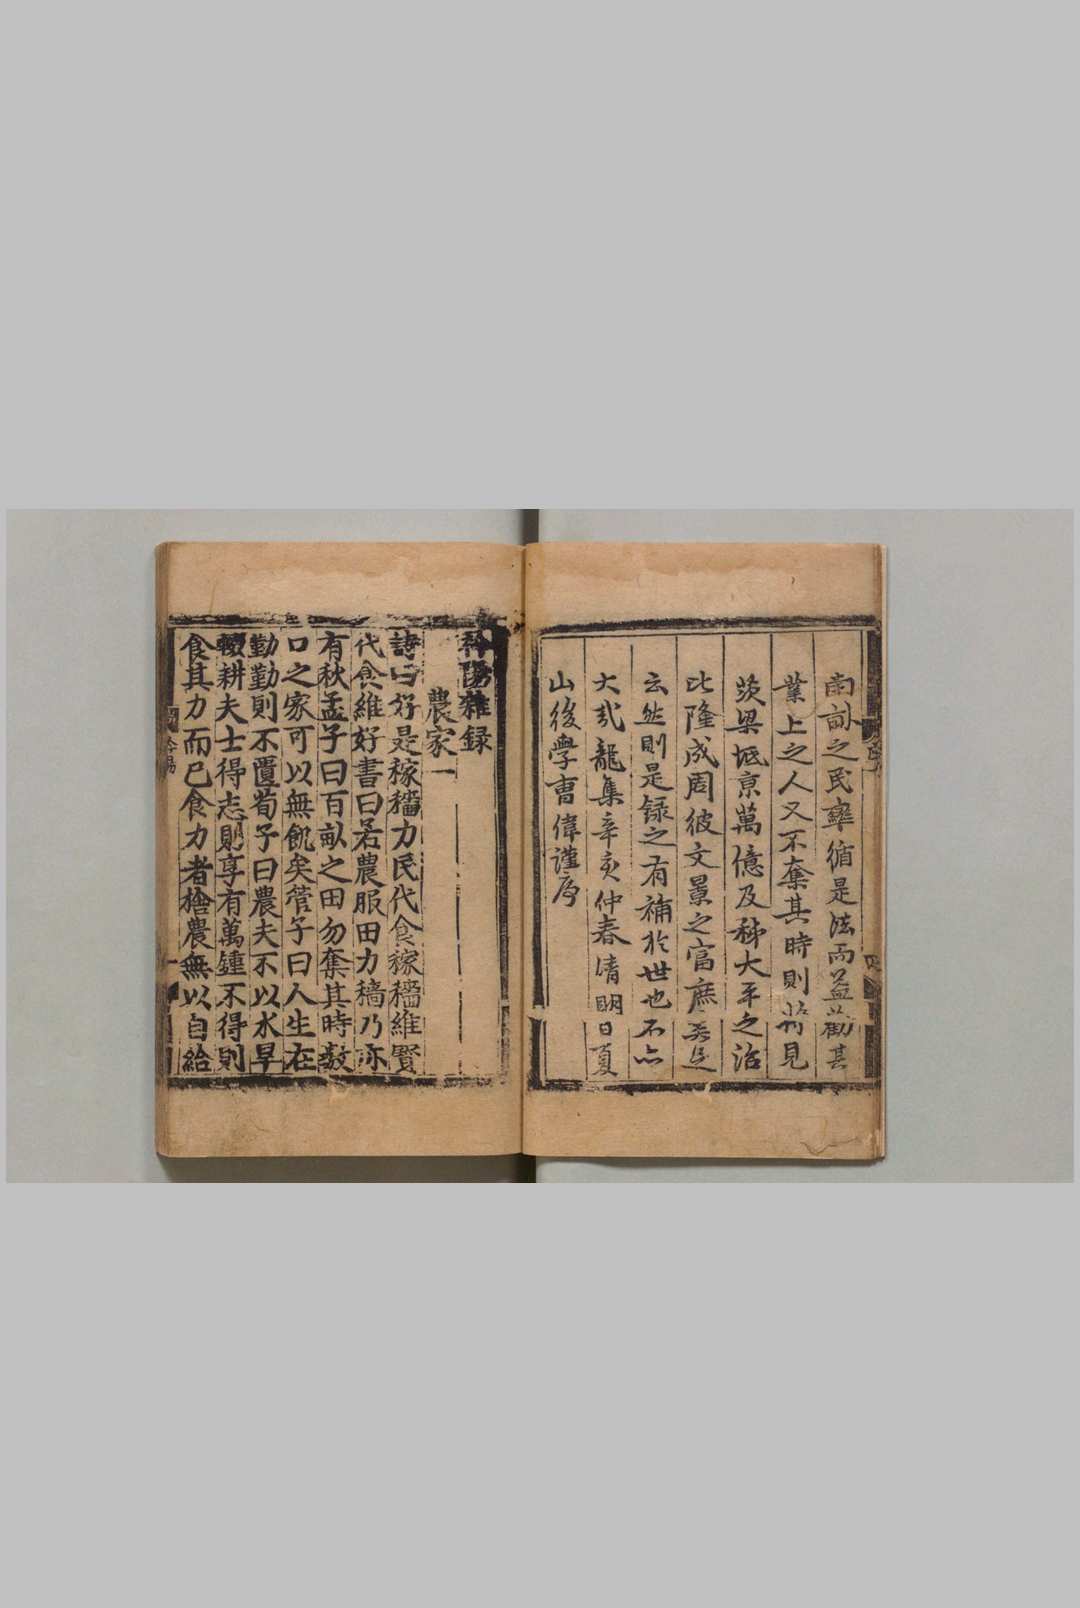 南畝之民率循是法而益勸其
業上之人又不奪其時則將見
茨梁坻京萬億及秭大平之治
比隆成周彼文景之富庶不足
云然則是録之有補於世也不亦
大哉龍集辛亥仲春清明日夏
山後學曺偉謹序
衿陽雜録
農家一
詩曰好是稼穡力民代食稼穡維寶
代食維好書曰若農服田力穡乃亦
有秋孟子曰百畝之田勿奪其時數
口之家可以無飢矣管子曰人生在
勤勤則不匱荀子曰農夫不以水旱
輟耕夫士得志則享有萬鍾不得則
食其力而已食力者捨農無以自給